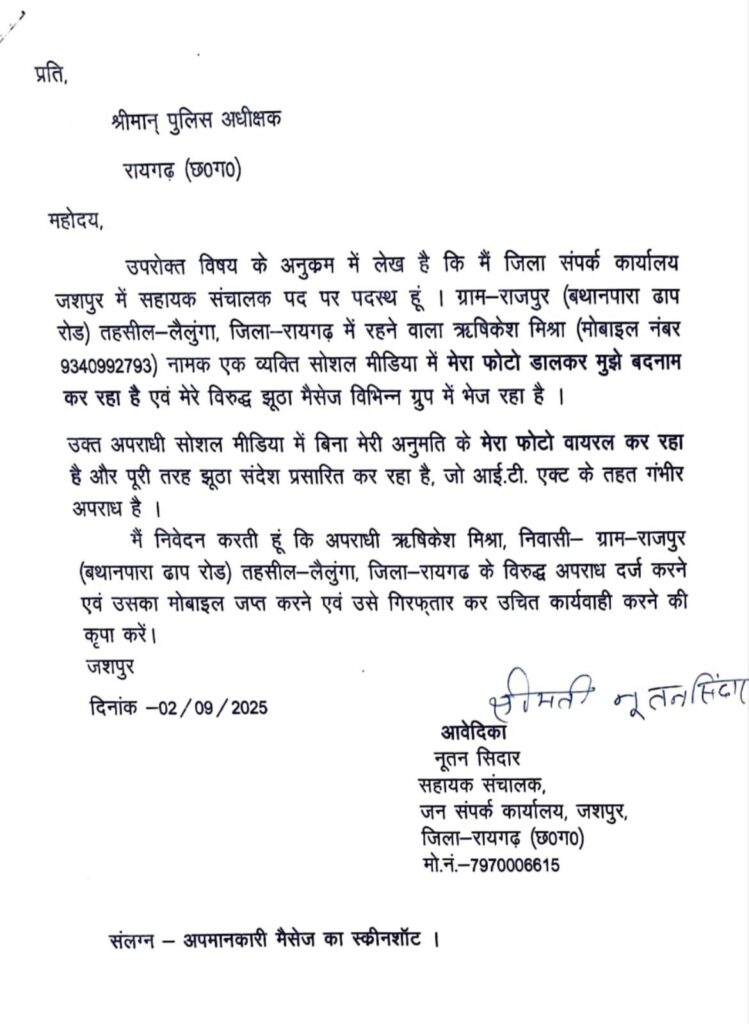 प्रति,
श्रीमान् पुलिस अधीक्षक
रायगढ़ (छ0ग0)
महोदय,
उपरोक्त विषय के अनुक्रम में लेख है कि मैं जिला संपर्क कार्यालय
जशपुर में सहायक संचालक पद पर पदस्थ हूं । ग्राम–राजपुर (बथानपारा ढाप
रोड) तहसील–लैलुंगा, जिला–रायगढ़ में रहने वाला ऋषिकेश मिश्रा (मोबाइल नंबर
9340992793) नामक एक व्यक्ति सोशल मीडिया में मेरा फोटो डालकर मुझे बदनाम
कर रहा है एवं मेरे विरुद्ध झूठा मैसेज विभिन्न ग्रुप में भेज रहा है ।
उक्त अपराधी सोशल मीडिया में बिना मेरी अनुमति के मेरा फोटो वायरल कर रहा
है और पूरी तरह झूठा संदेश प्रसारित कर रहा है, जो आई.टी. एक्ट के तहत गंभीर
अपराध है ।
मैं निवेदन करती हूं कि अपराधी ऋषिकेश मिश्रा, निवासी– ग्राम–राजपुर
(बथानपारा ढाप रोड) तहसील–लैलुंगा, जिला–रायगढ के विरुद्ध अपराध दर्ज करने
एवं उसका मोबाइल जप्त करने एवं उसे गिरफ्तार कर उचित कार्यवाही करने की
कृपा करें।
जशपुर
दिनांक –02/09/2025
श्रीमती नूतन सिंदार
आवेदिका
नूतन सिदार
सहायक संचालक,
जन संपर्क कार्यालय, जशपुर,
जिला–रायगढ़ (छ0ग0)
मो.नं.–7970006615
संलग्न – अपमानकारी मैसेज का स्क्रीनशॉट ।